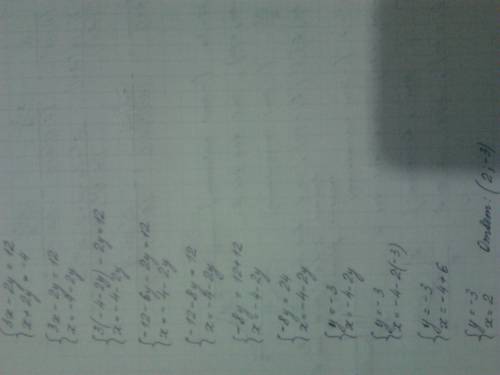 {3x-2y=12
{x+2y=-4
{3x-2y=12
{x=-4-2y
{3(-4-2y)-2y=12
{x=-4-2y
{-12-6y-2y=12
{x=-4-2y
{-12-8y=12
{x=-4-2y
{-8y=12+12
{x=-4-2y
{-8y=24
{x=-4-2y
{y=-3
{x=-4-2y
{y=-3
{x=-4-2(-3)
{y=-3
{x=-4+6
{y=-3
{x=2
Ответ: (2;-3)